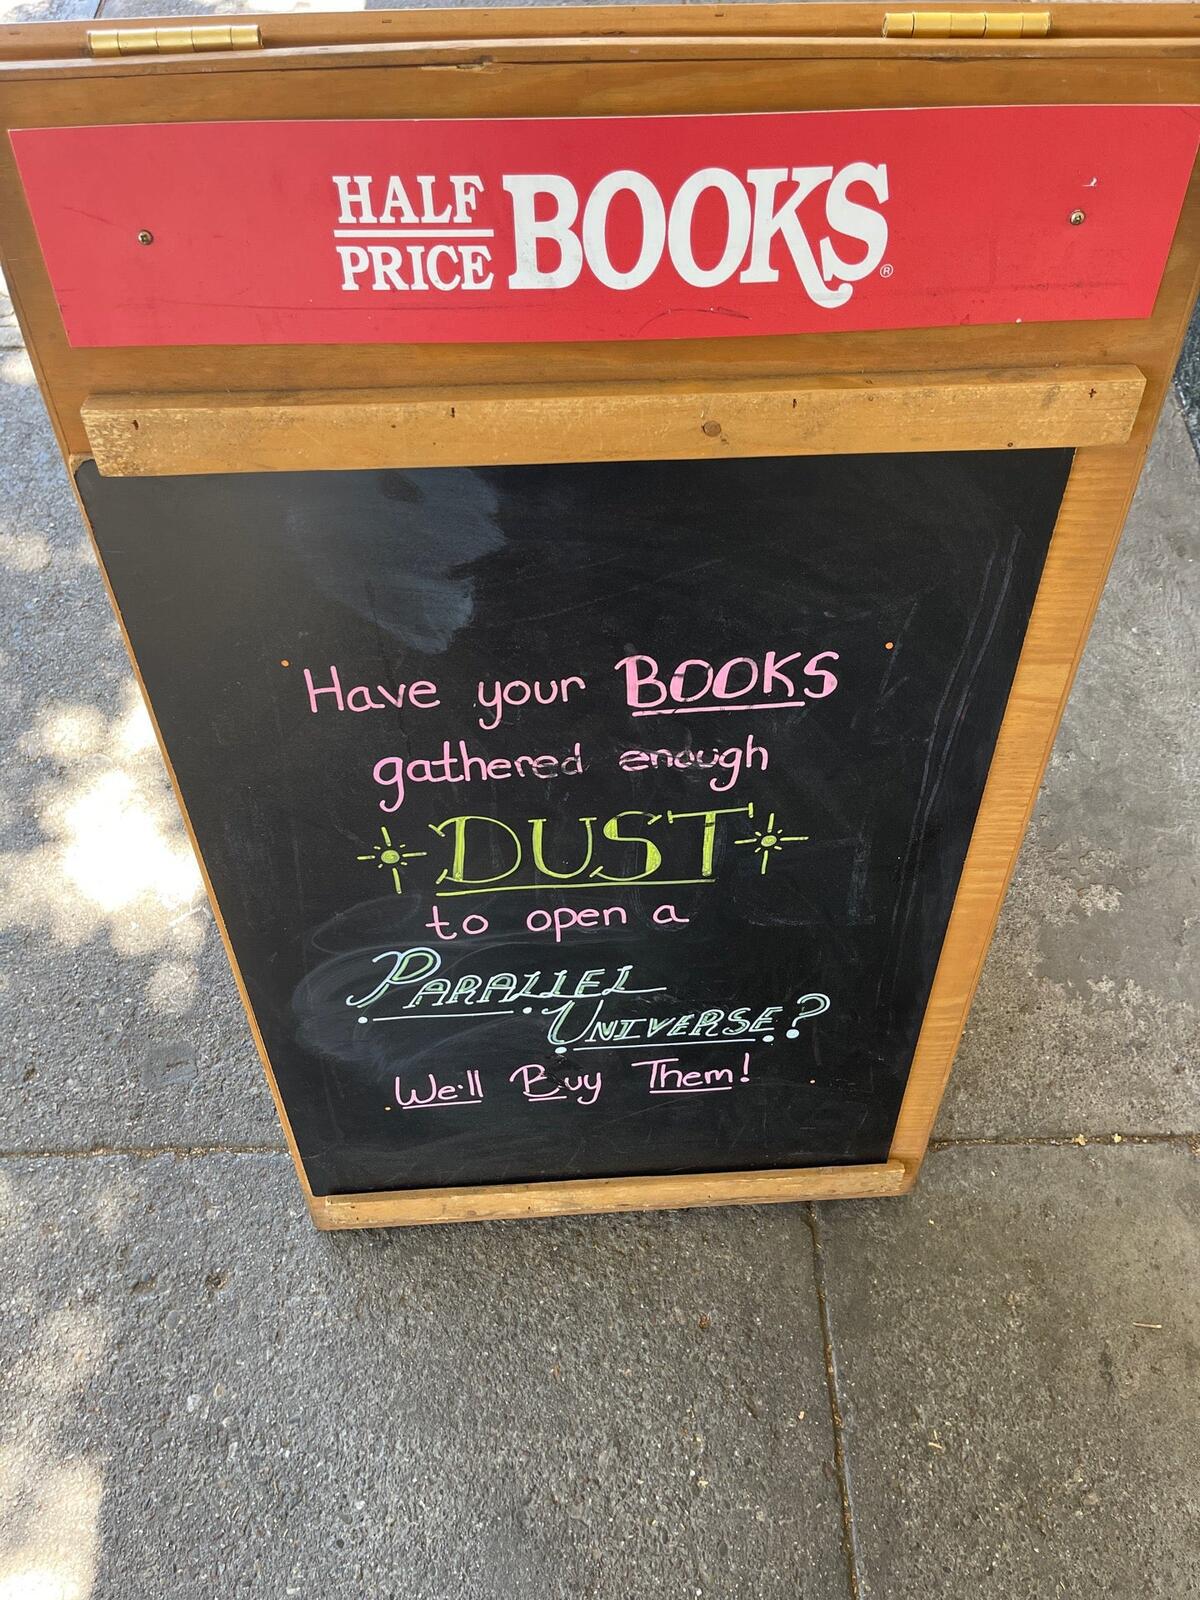 HALF
PRICE BOOKS®
Have your BOOKS
gathered enough
DUST
to open a
PARALLEL
UNIVERSE?
We'll Buy Them!